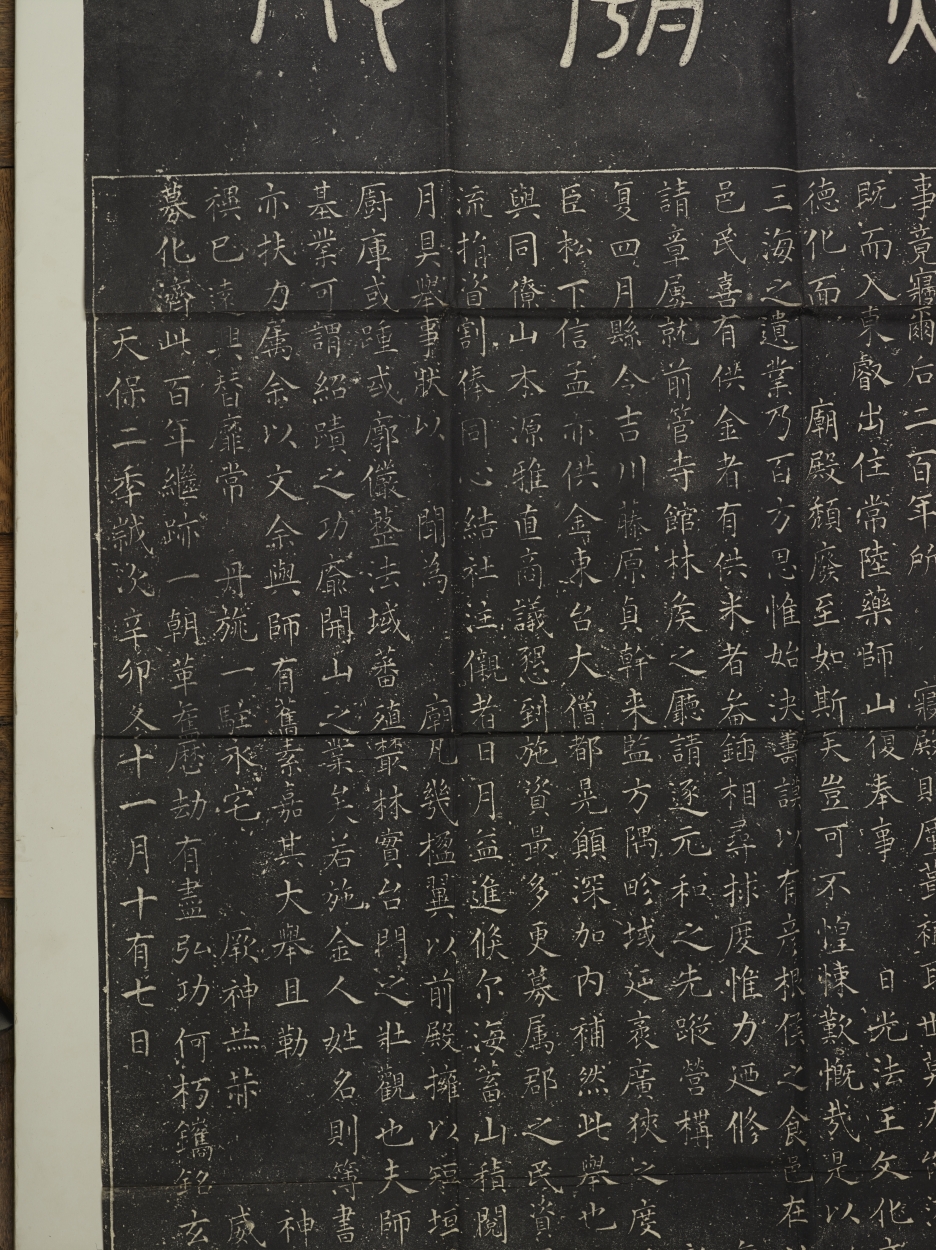 事竟寤爾后二百年所 寢殿則
既而入東叡出住常陸藥師山復奉事 日光法王文化
德化而 廟殿頽廢至如斯矣豈可不惶悚歎慨哉是以
三海之遺業乃百方思惟始決書謨以有彦根侯之食邑在
邑民喜有供金者有供米者畚鍤相尋捄度惟力迺修
請章屢就前管寺館林矦之廳請逐元和之先蹤營構
夏四月縣令吉川藤原貞幹来監方隅畛域延袤廣狹之度
臣松下信孟亦供金東台大僧都晃顛深加內補然此舉也
與同僚山本源雅直商議懇到施資最多更募属郡之民資
流指資割俸同心結社注儭者日月益進倏尔海蓄山積閱
月具舉事狀以 聞為 廟凡幾楹翼以前殿擁以垣
厨庫或踵或廓儼整法域蕃殖叢林實台門之壯觀也夫師
基業可謂紹蹟之功厳開山之業矣若施金人姓名則簿書
亦扶力属余以文余與師有舊素嘉其大舉且勒 神
禩已遠其替靡常 丹旐一駐永宅 厥神 威
募化濟此百年繼跡一朝革 歷劫有盡弘功何朽鐫銘玄
天保二季龍次辛卯冬十一月十有七日